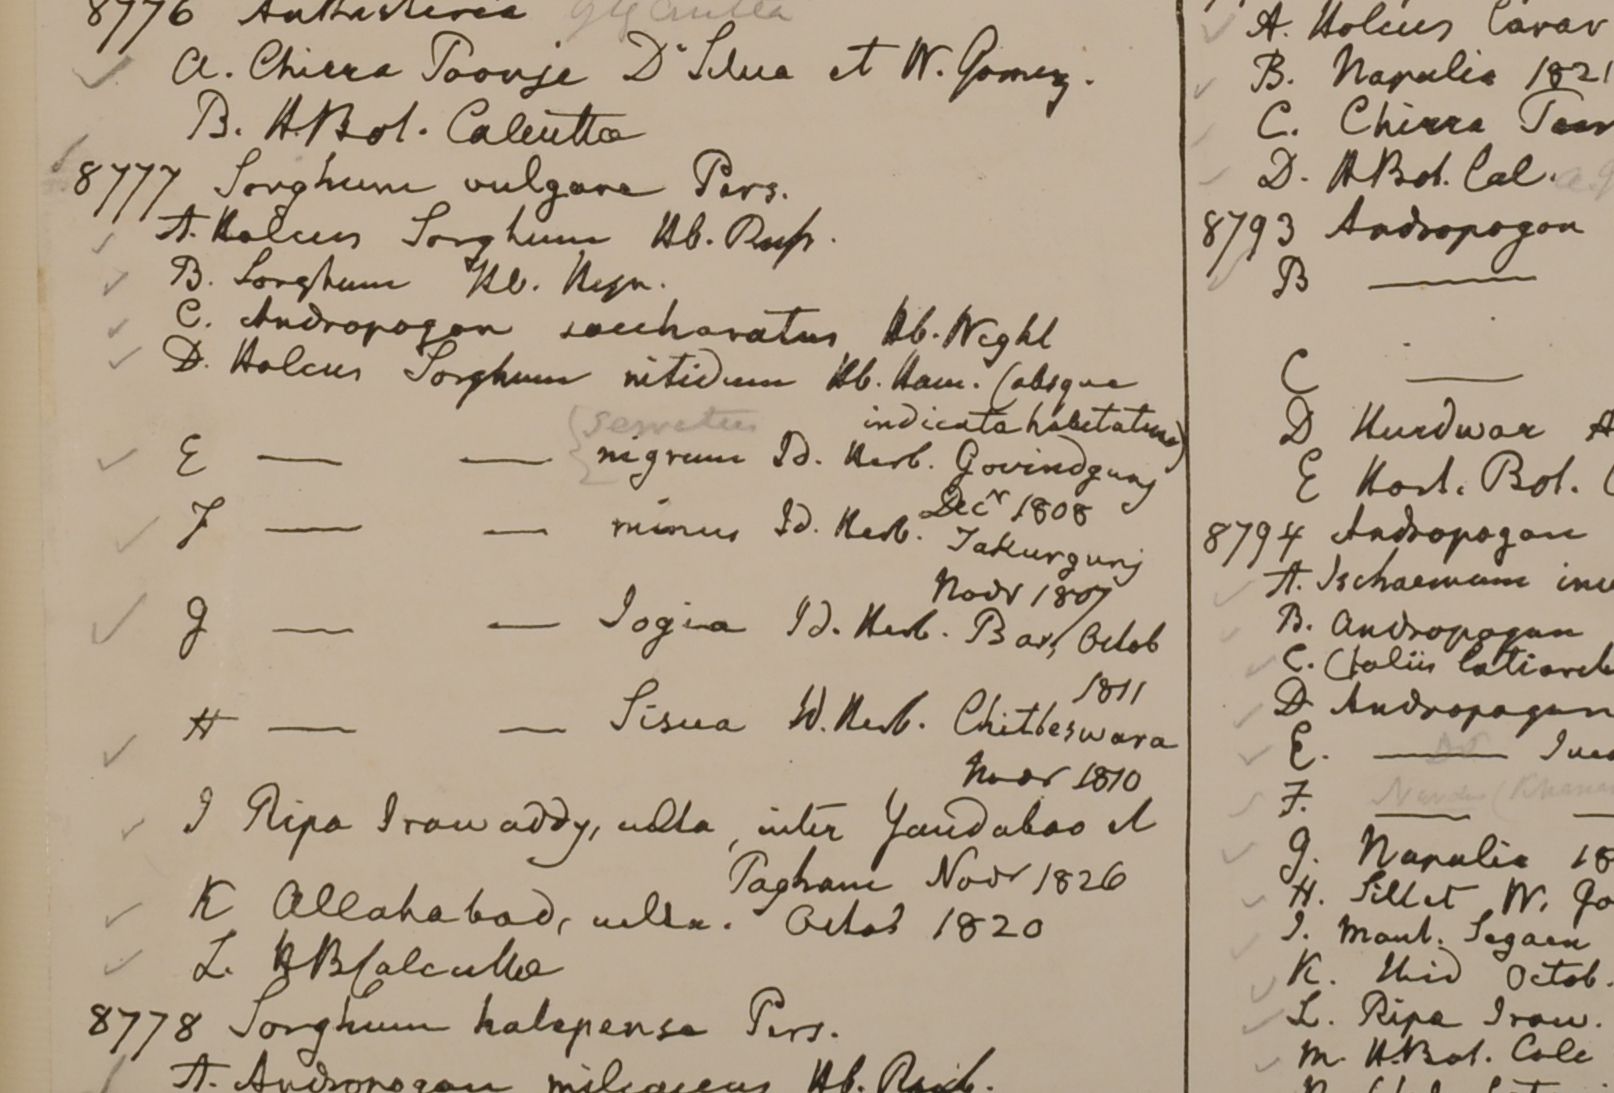 8776 Anthistiria gigantea
a. Chirra Poonje D'Silva et W. Gomez.
B. H.Bot. Calcutta
8777 Sorghum vulgare Pers.
A. Holcus Sorghum Hb. Russ.
B. Sorghum Hb. Heyn.
C. Andropogon saccharatus Hb. Wght
D. Holcus Sorghum nitidum Hb. Ham. (absque
indicata habitatione)
serratus
E — — nigrum Id. Herb. Govindgunj
Decr 1808
F — — minus Id. Herb. Takurgunj
Novr 1807
G — — Jogia Id. Herb. Bar, Octob
1811
H — — Sisua Id. Herb. Chitteswara
Novr 1810
I Ripa Irawaddy, culta, inter Yandaboo et
Pagham Novr 1826
K Allahabad, culta. Octob 1820
L. HBCalcutta
8778 Sorghum halepense Pers.
A. Andropogon miliaceus Hb. Roxb.
A. Holcus
B. Napalia 1821
C. Chirra
D. HBot. Cal.
8793 Andropogon
B —
C —
D Hurdwar
E Hort. Bot.
8794 Andropogon
A. Ischaemum
B. Andropogon
C. (foliis
D Andropogon
E. —
F. —
G. Napalia 18
H. Sillet W. Go
I. Mont. Segaen
K. Ibid Octob.
L. Ripa Iraw.
M. H.Bot. Calc